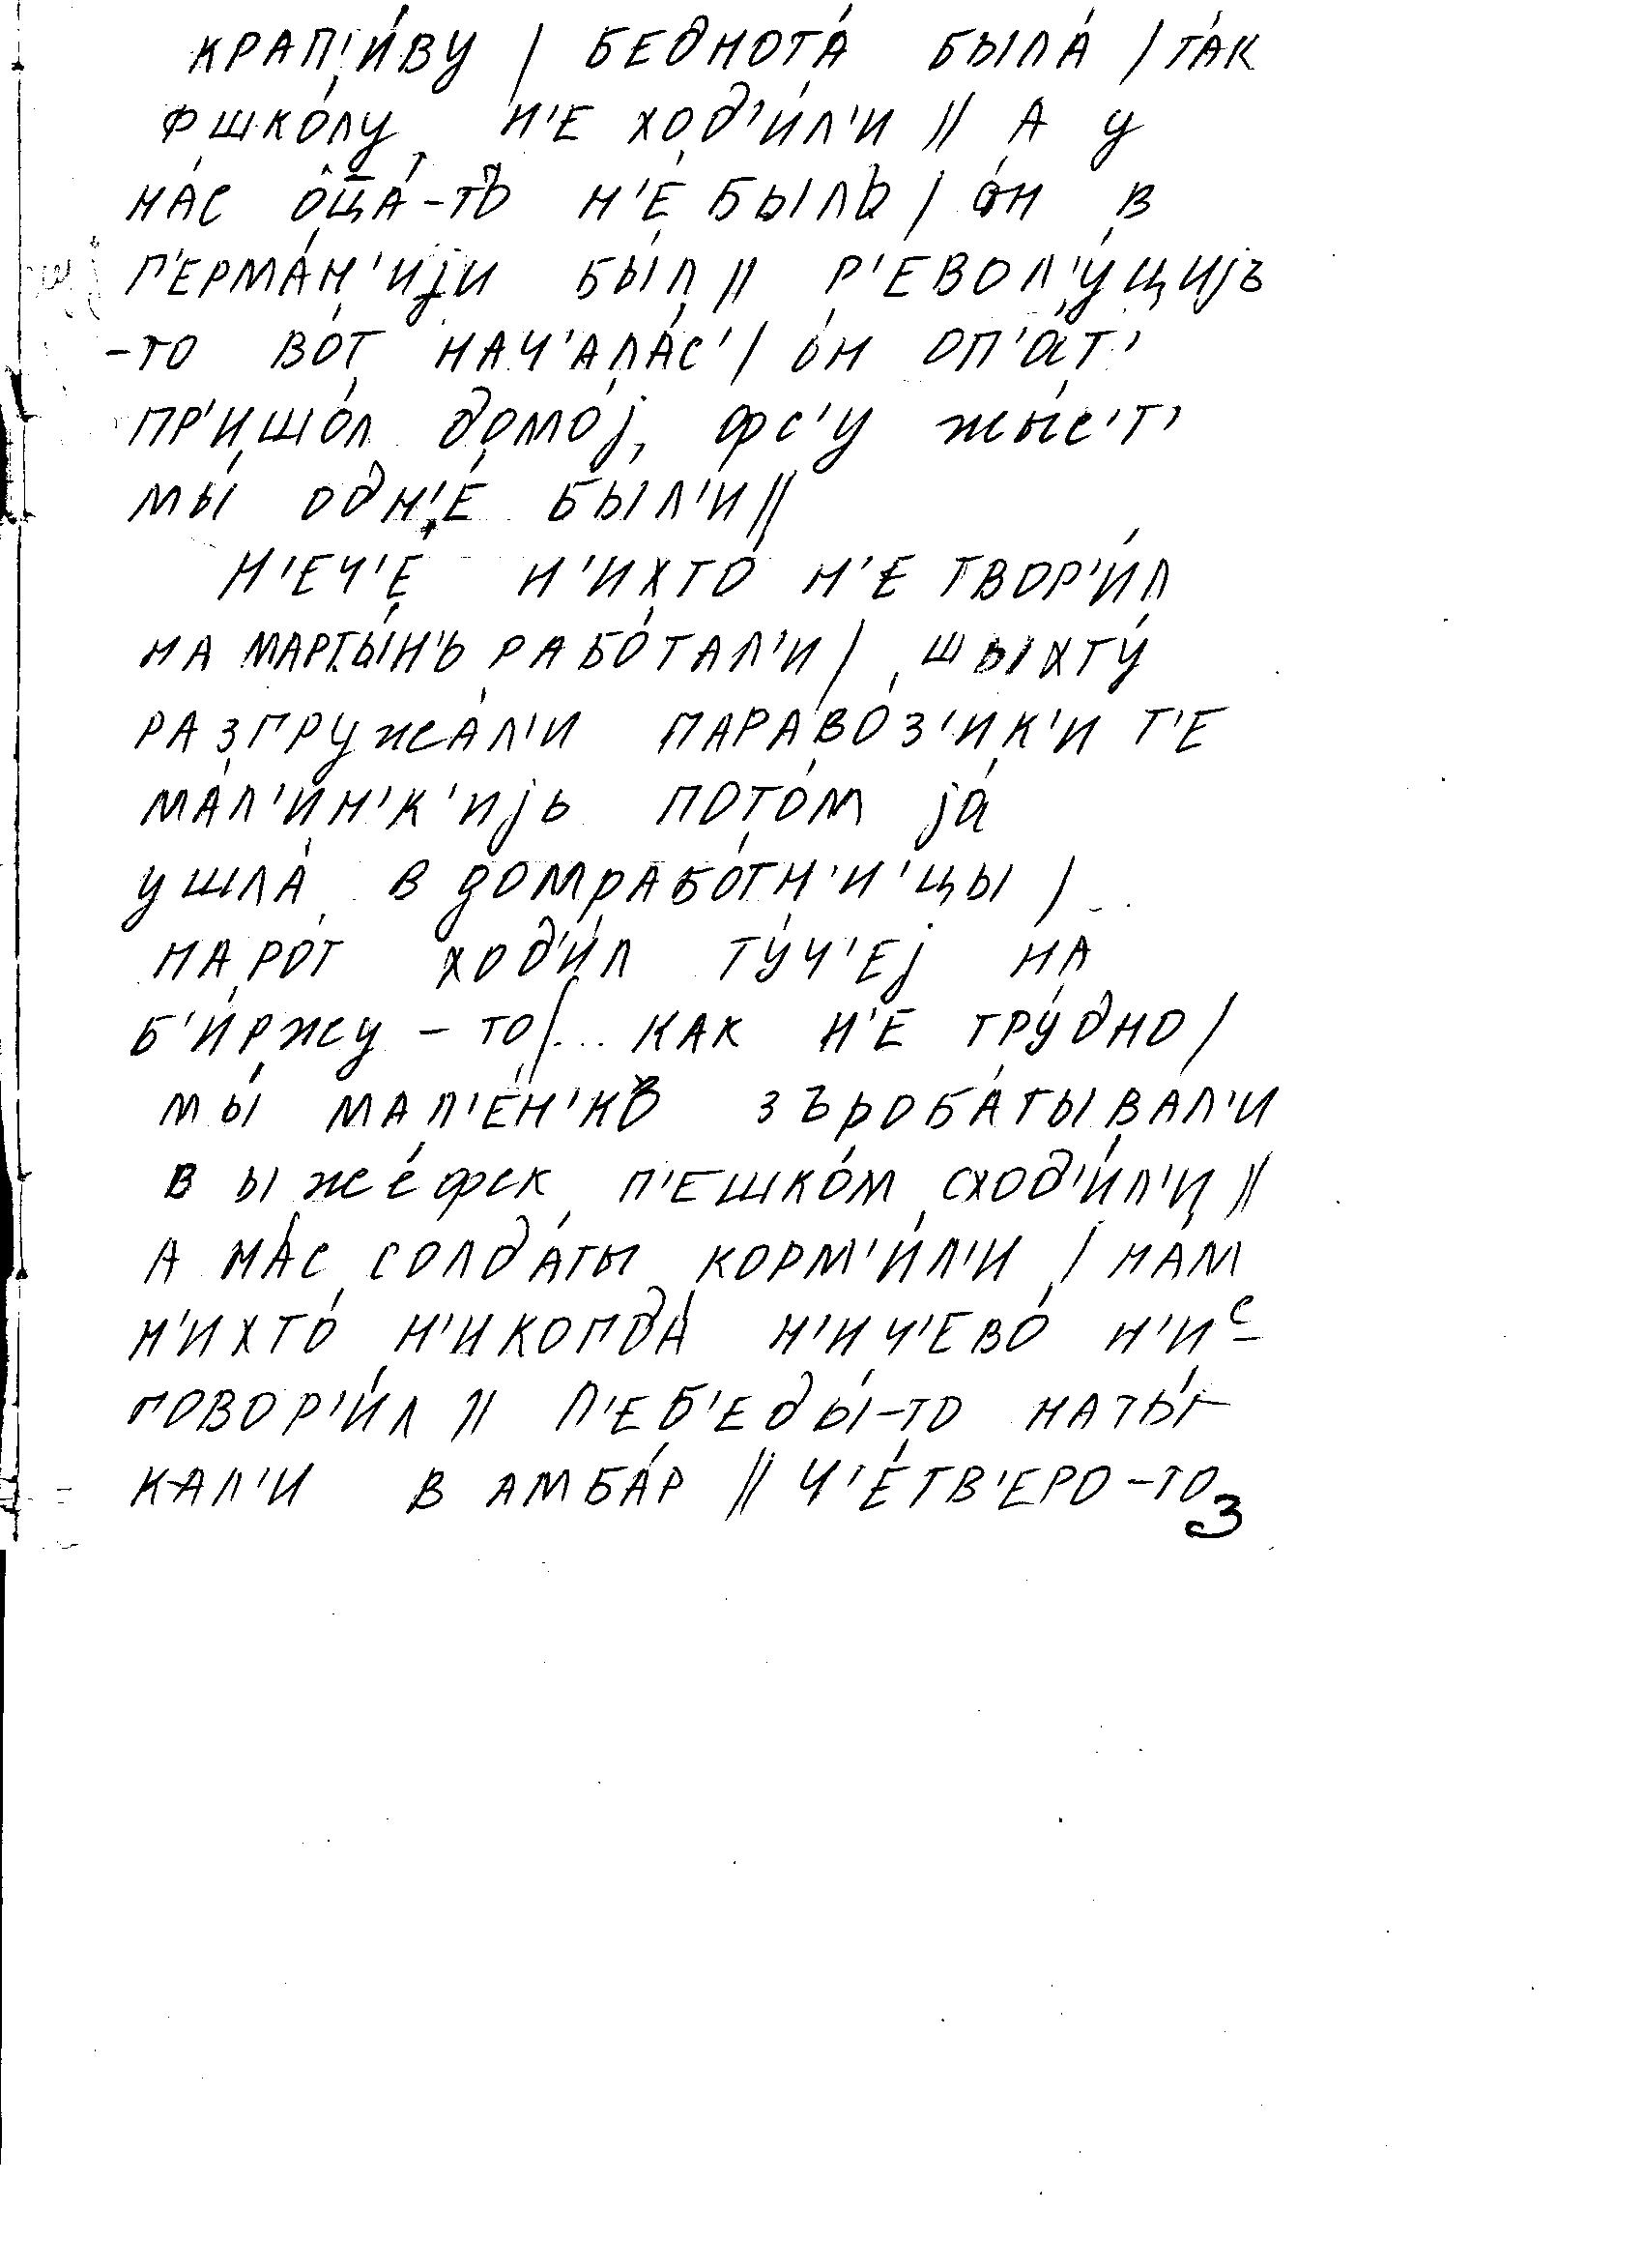 КРАП'И́ВУ / БЕДНОТА́ БЫЛА́ / ТА́К
ФШКО́ЛУ Н'Е ХОД'И́Л'И // А У
НА́С ОЦА́-ТЪ Н'Е́ БЫЛЪ / О́Н В
Г'ЕРМА́Н'ИjИ БЫ́Л // Р'ЕВОЛ'У́ЦИjЪ
-ТО ВО́Т НАЧ'АЛА́С' / О́Н ОП'А́Т'
ПР'ИШО́Л ДОМО́j, ФС'У ЖЫ́С'Т'
МЫ́ ОДН'Е́ БЫ́Л'И //
Н'ЕЧ'Е́ Н'ИХТО́ Н'Е ТВОР'И́Л
НА МАРТЫ́Н'Ь РАБО́ТАЛ'И / ШЫХТУ́
РАЗГРУЖА́Л'И ПАРАВО́З'ИК'И Т'Е
МА́Л'ИН'К'ИjЬ ПОТО́М jА́
УШЛА́ В ДОМРАБО́ТН'И'ЦЫ /
НАРО́Т ХОД'И́Л ТУ́Ч'Еj НА
Б'И́РЖУ - ТО /... КАК Н'Е ТРУ́ДНО /
МЫ́ МАЛ'Е́Н'КЪ ЗЪРОБА́ТЫВАЛ'И
В ЫЖЕ́ФСК П'ЕШКО́М СХОД'И́Л'И //
А НА́С СОЛДА́ТЫ КОРМ'И́Л'И / НА́М
Н'ИХТО́ Н'ИКОГДА́ Н'ИЧ'ЕВО́ Н'И
ГОВОР'И́Л // Л'ЕБ'ЕДЫ́-ТО НАТЫ́-
КАЛ'И В АМБА́Р // Ч'Е́ТВ'ЕРО-ТО
3